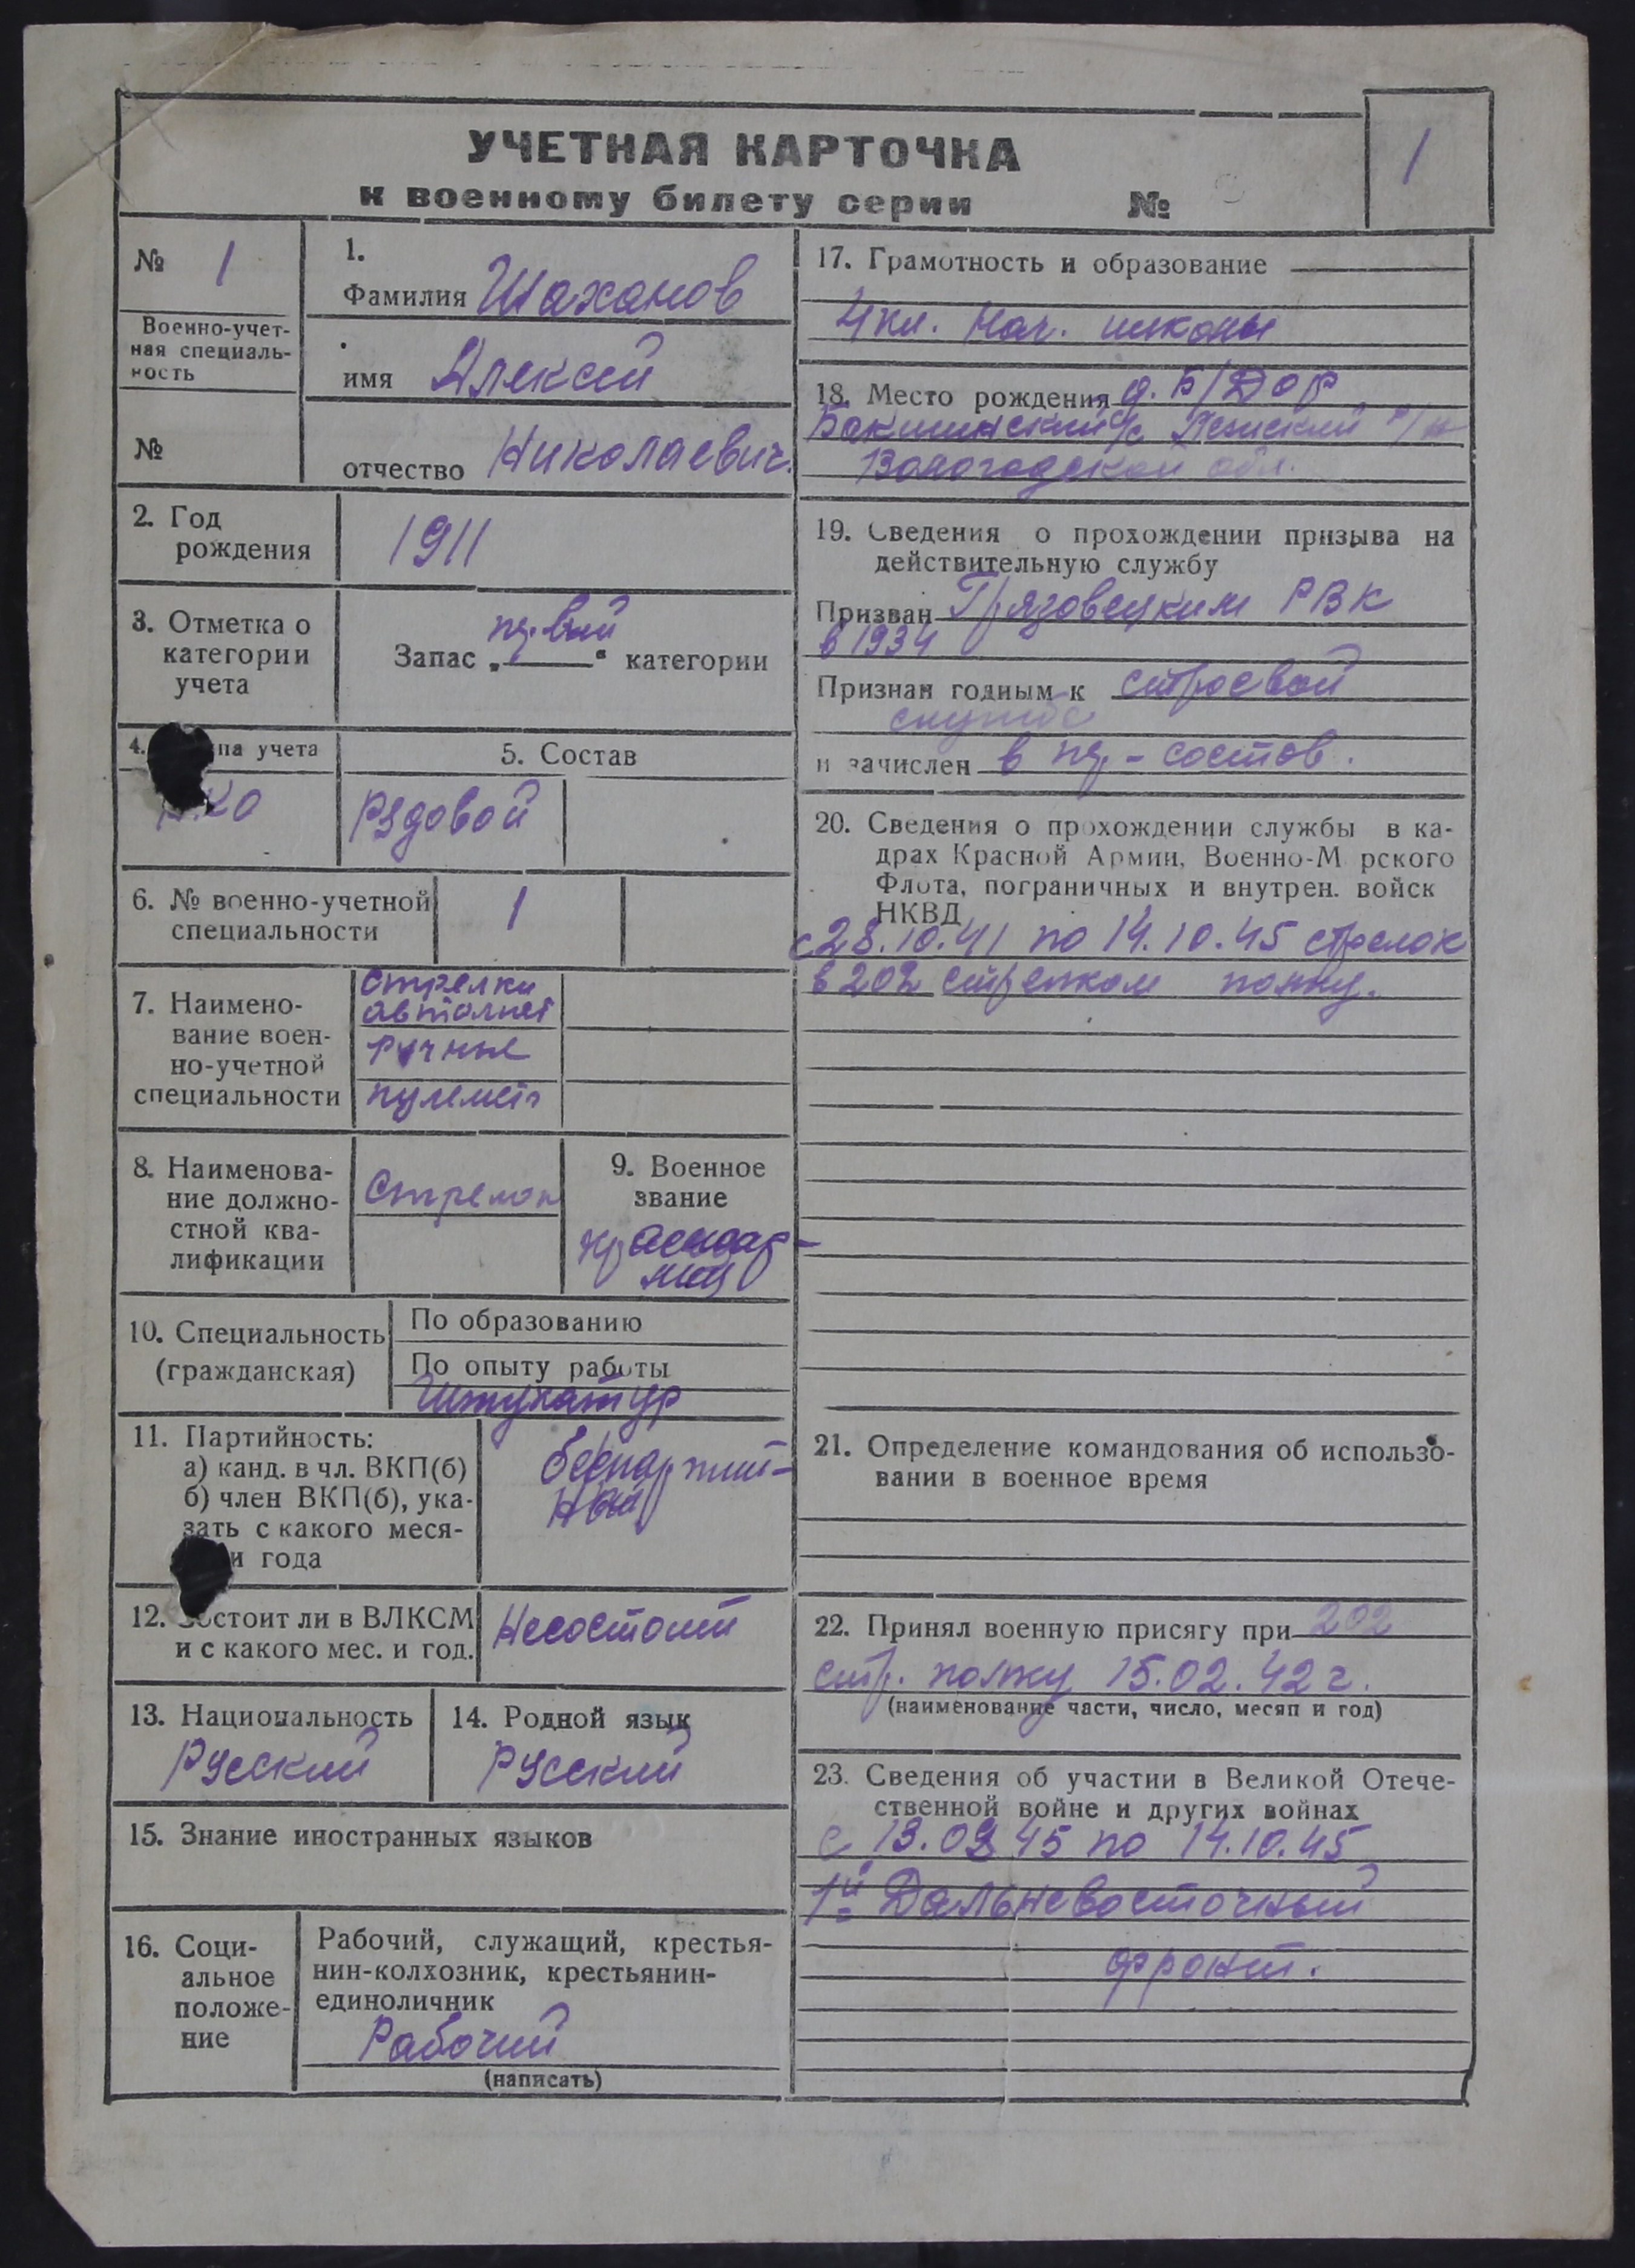 УЧЕТНАЯ КАРТОЧКА
к военному билету серии №
1
№ 1
Военно-учет-
ная специаль-
ность
№
1.
Фамилия Шаханов
имя Алексей
отчество Николаевич.
2. Год
рождения
1911
3. Отметка о
категории
учета
Запас „первой“ категории
4. па учета
5. Состав
Рядовой
6. № военно-учетной
специальности
1
7. Наимено-
вание воен-
но-учетной
специальности
Стрелки
автомат
ручные
пулемет
8. Наименова-
ние должно-
стной ква-
лификации
Стрелок
9. Военное
звание
красноар-
меец
10. Специальность
(гражданская)
По образованию
По опыту работы
Штукатур
11. Партийность:
а) канд. в чл. ВКП(б)
б) член ВКП(б), ука-
зать с какого меся-
и года
беспартий-
ный
12. Состоит ли в ВЛКСМ
и с какого мес. и год.
Несостоит
13. Национальность
Русский
14. Родной язык
Русский
15. Знание иностранных языков
16. Соци-
альное
положе-
ние
Рабочий, служащий, крестья-
нин-колхозник, крестьянин-
единоличник
Рабочий
(написать)
17. Грамотность и образование
4 кл. нач. школы
18. Место рождения д. Б/Дор
с/с р/н
Вологодской обл.
19. Сведения о прохождении призыва на
действительную службу
Призван Грязовецким РВК
в 1934
Признан годным к строевой
службе
и зачислен в состав.
20. Сведения о прохождении службы в ка-
драх Красной Армии, Военно-М рского
Флота, пограничных и внутрен. войск
НКВД
с 28.10.41 по 14.10.45 стрелок
в 202 стрелком полку.
21. Определение командования об использо-
вании в военное время
22. Принял военную присягу при 202
стр. полку 15.02.42 г.
(наименование части, число, месяц и год)
23. Сведения об участии в Великой Отече-
ственной войне и других войнах
с 45 по 14.10.45
1й Дальневосточный
фронт.